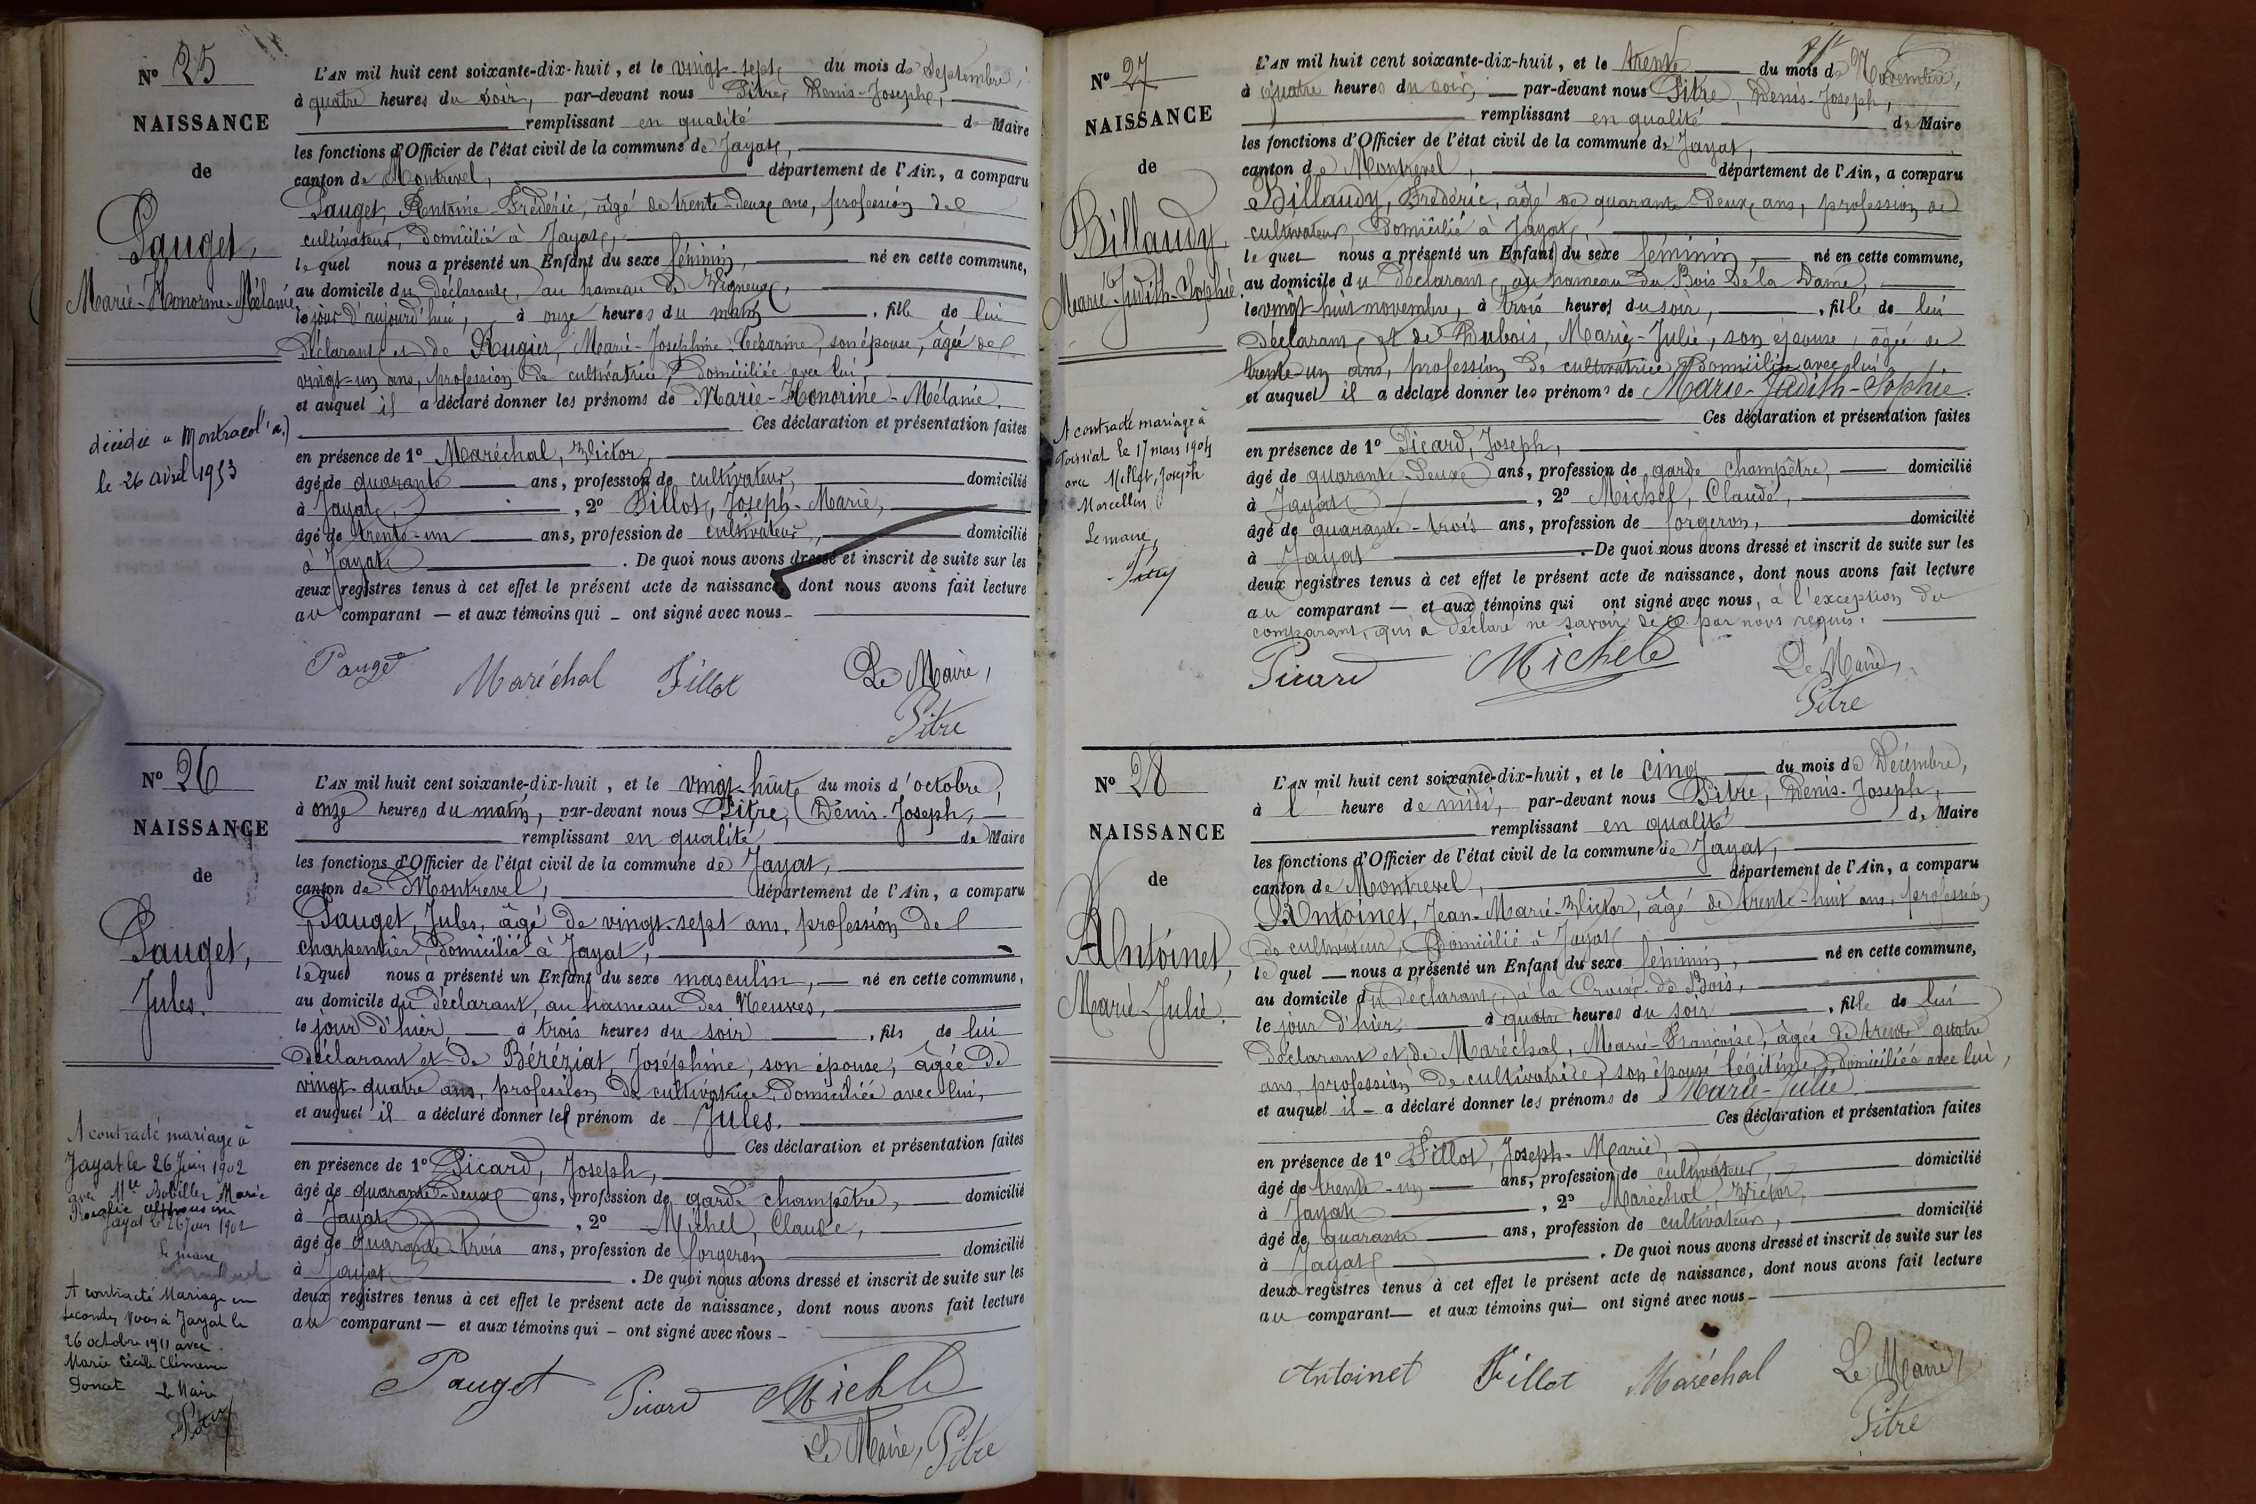 N° 25
NAISSANCE
de
Pauget,
Marie-Honorine-Mélanie
décédée à Montracol (Ain)
le 26 avril 1953
L'AN mil huit cent soixante-dix-huit, et le vingt-sept du mois de Septembre,
à quatre heures du soir, par-devant nous Pitre, Denis-Joseph,
remplissant en qualité de Maire
les fonctions d'Officier de l'état civil de la commune de Jayat,
canton de Montrevel, département de l'Ain, a comparu
Pauget, Antoine-Frédéric, âgé de trente-deux ans, profession de
cultivateur, domicilié à Jayat,
lequel nous a présenté un Enfant du sexe féminin, né en cette commune,
au domicile du déclarant, au hameau de Vigneux,
le jour d'aujourd'hui, à onze heures du matin, fille de lui
déclarant et de Rugier, Marie-Josephine, son épouse, âgée de
vingt-un ans, profession de cultivatrice, domiciliée avec lui
et auquel il a déclaré donner les prénoms de Marie-Honorine-Mélanie.
Ces déclaration et présentation faites
en présence de 1° Maréchal, Victor,
âgé de quarante ans, profession de cultivateur, domicilié
à Jayat, 2° Fillot, Joseph-Marie,
âgé de trente-un ans, profession de cultivateur, domicilié
à Jayat. De quoi nous avons dressé et inscrit de suite sur les
deux registres tenus à cet effet le présent acte de naissance, dont nous avons fait lecture
au comparant — et aux témoins qui - ont signé avec nous -
Pauget Maréchal Fillot Le Maire,
Pitre
N° 26
NAISSANCE
de
Pauget,
Jules.
A contracté mariage à
Jayat le 26 Juin 1902
avec Mlle Bobillier Marie
Rosalie
Jayat le 26 Juin 1902
Le maire
A contracté Mariage en
secondes noces à Jayat le
26 octobre 1911 avec
Marie Cécile Clémence
Donat Le Maire
L'AN mil huit cent soixante-dix-huit, et le vingt-huit du mois d'octobre,
à onze heures du matin, par-devant nous Pitre, Denis-Joseph,
remplissant en qualité de Maire
les fonctions d'Officier de l'état civil de la commune de Jayat,
canton de Montrevel, département de l'Ain, a comparu
Pauget, Jules, âgé de vingt-sept ans, profession de
charpentier, domicilié à Jayat,
lequel nous a présenté un Enfant du sexe masculin, né en cette commune,
au domicile du déclarant, au hameau des Neuves,
le jour d'hier, à trois heures du soir, fils de lui
déclarant et de Béréziat, Joséphine, son épouse, âgée de
vingt-quatre ans, profession de cultivatrice, domiciliée avec lui,
et auquel il a déclaré donner les prénom de Jules.
Ces déclaration et présentation faites
en présence de 1° Picard, Joseph,
âgé de quarante-deux ans, profession de garde champêtre, domicilié
à Jayat, 2° Michel, Claude,
âgé de quarante-trois ans, profession de forgeron domicilié
à Jayat. De quoi nous avons dressé et inscrit de suite sur les
deux registres tenus à cet effet le présent acte de naissance, dont nous avons fait lecture
au comparant — et aux témoins qui - ont signé avec nous -
Pauget Picard Michel
Le Maire, Pitre
N° 27
NAISSANCE
de
Billaudy,
Marie-Judith-Sophie.
A contracté mariage à
Foissiat le 17 mars 1904
avec Millet, Joseph
Marcellin
Le maire,
Pitre
L'AN mil huit cent soixante-dix-huit, et le trente du mois de Novembre,
à quatre heures du soir, par-devant nous Pitre, Denis-Joseph,
remplissant en qualité de Maire
les fonctions d'Officier de l'état civil de la commune de Jayat,
canton de Montrevel, département de l'Ain, a comparu
Billaudy, Frédéric, âgé de quarante-deux ans, profession de
cultivateur, domicilié à Jayat,
lequel nous a présenté un Enfant du sexe féminin, né en cette commune,
au domicile du déclarant, au hameau du Bois de la Dame,
le vingt-huit novembre, à trois heures du soir, fille de lui
déclarant et de Dubois, Marie-Julie, son épouse, âgée de
trente-un ans, profession de cultivatrice, domiciliée avec lui
et auquel il a déclaré donner les prénoms de Marie-Judith-Sophie.
Ces déclaration et présentation faites
en présence de 1° Picard, Joseph,
âgé de quarante-deux ans, profession de garde champêtre, domicilié
à Jayat, 2° Michel, Claude,
âgé de quarante-trois ans, profession de forgeron, domicilié
à Jayat. De quoi nous avons dressé et inscrit de suite sur les
deux registres tenus à cet effet le présent acte de naissance, dont nous avons fait lecture
au comparant — et aux témoins qui ont signé avec nous, à l'exception du
comparant, qui a déclaré ne savoir de ce par nous requis.
Picard Michel Le Maire,
Pitre
N° 28
NAISSANCE
de
Antoinet,
Marie-Julie.
L'AN mil huit cent soixante-dix-huit, et le cinq du mois de Décembre,
à l'heure de midi, par-devant nous Pitre, Denis-Joseph,
remplissant en qualité de Maire
les fonctions d'Officier de l'état civil de la commune de Jayat,
canton de Montrevel, département de l'Ain, a comparu
Antoinet, Jean-Marie-Victor, âgé de trente-huit ans, profession
de cultivateur, domicilié à Jayat
lequel — nous a présenté un Enfant du sexe féminin, né en cette commune,
au domicile du déclarant, à la Croix de Bois,
le jour d'hier, à quatre heures du soir, fille de lui
déclarant et de Maréchal, Marie-Françoise, âgée de trente-quatre
ans, profession de cultivatrice, son épouse légitime, domiciliée avec lui,
et auquel il — a déclaré donner les prénoms de Marie-Julie.
Ces déclaration et présentation faites
en présence de 1° Fillot, Joseph-Marie,
âgé de trente-un ans, profession de cultivateur, domicilié
à Jayat, 2° Maréchal, Victor,
âgé de quarante ans, profession de cultivateur, domicilié
à Jayat. De quoi nous avons dressé et inscrit de suite sur les
deux registres tenus à cet effet le présent acte de naissance, dont nous avons fait lecture
au comparant — et aux témoins qui — ont signé avec nous -
Antoinet Fillot Maréchal Le Maire,
Pitre